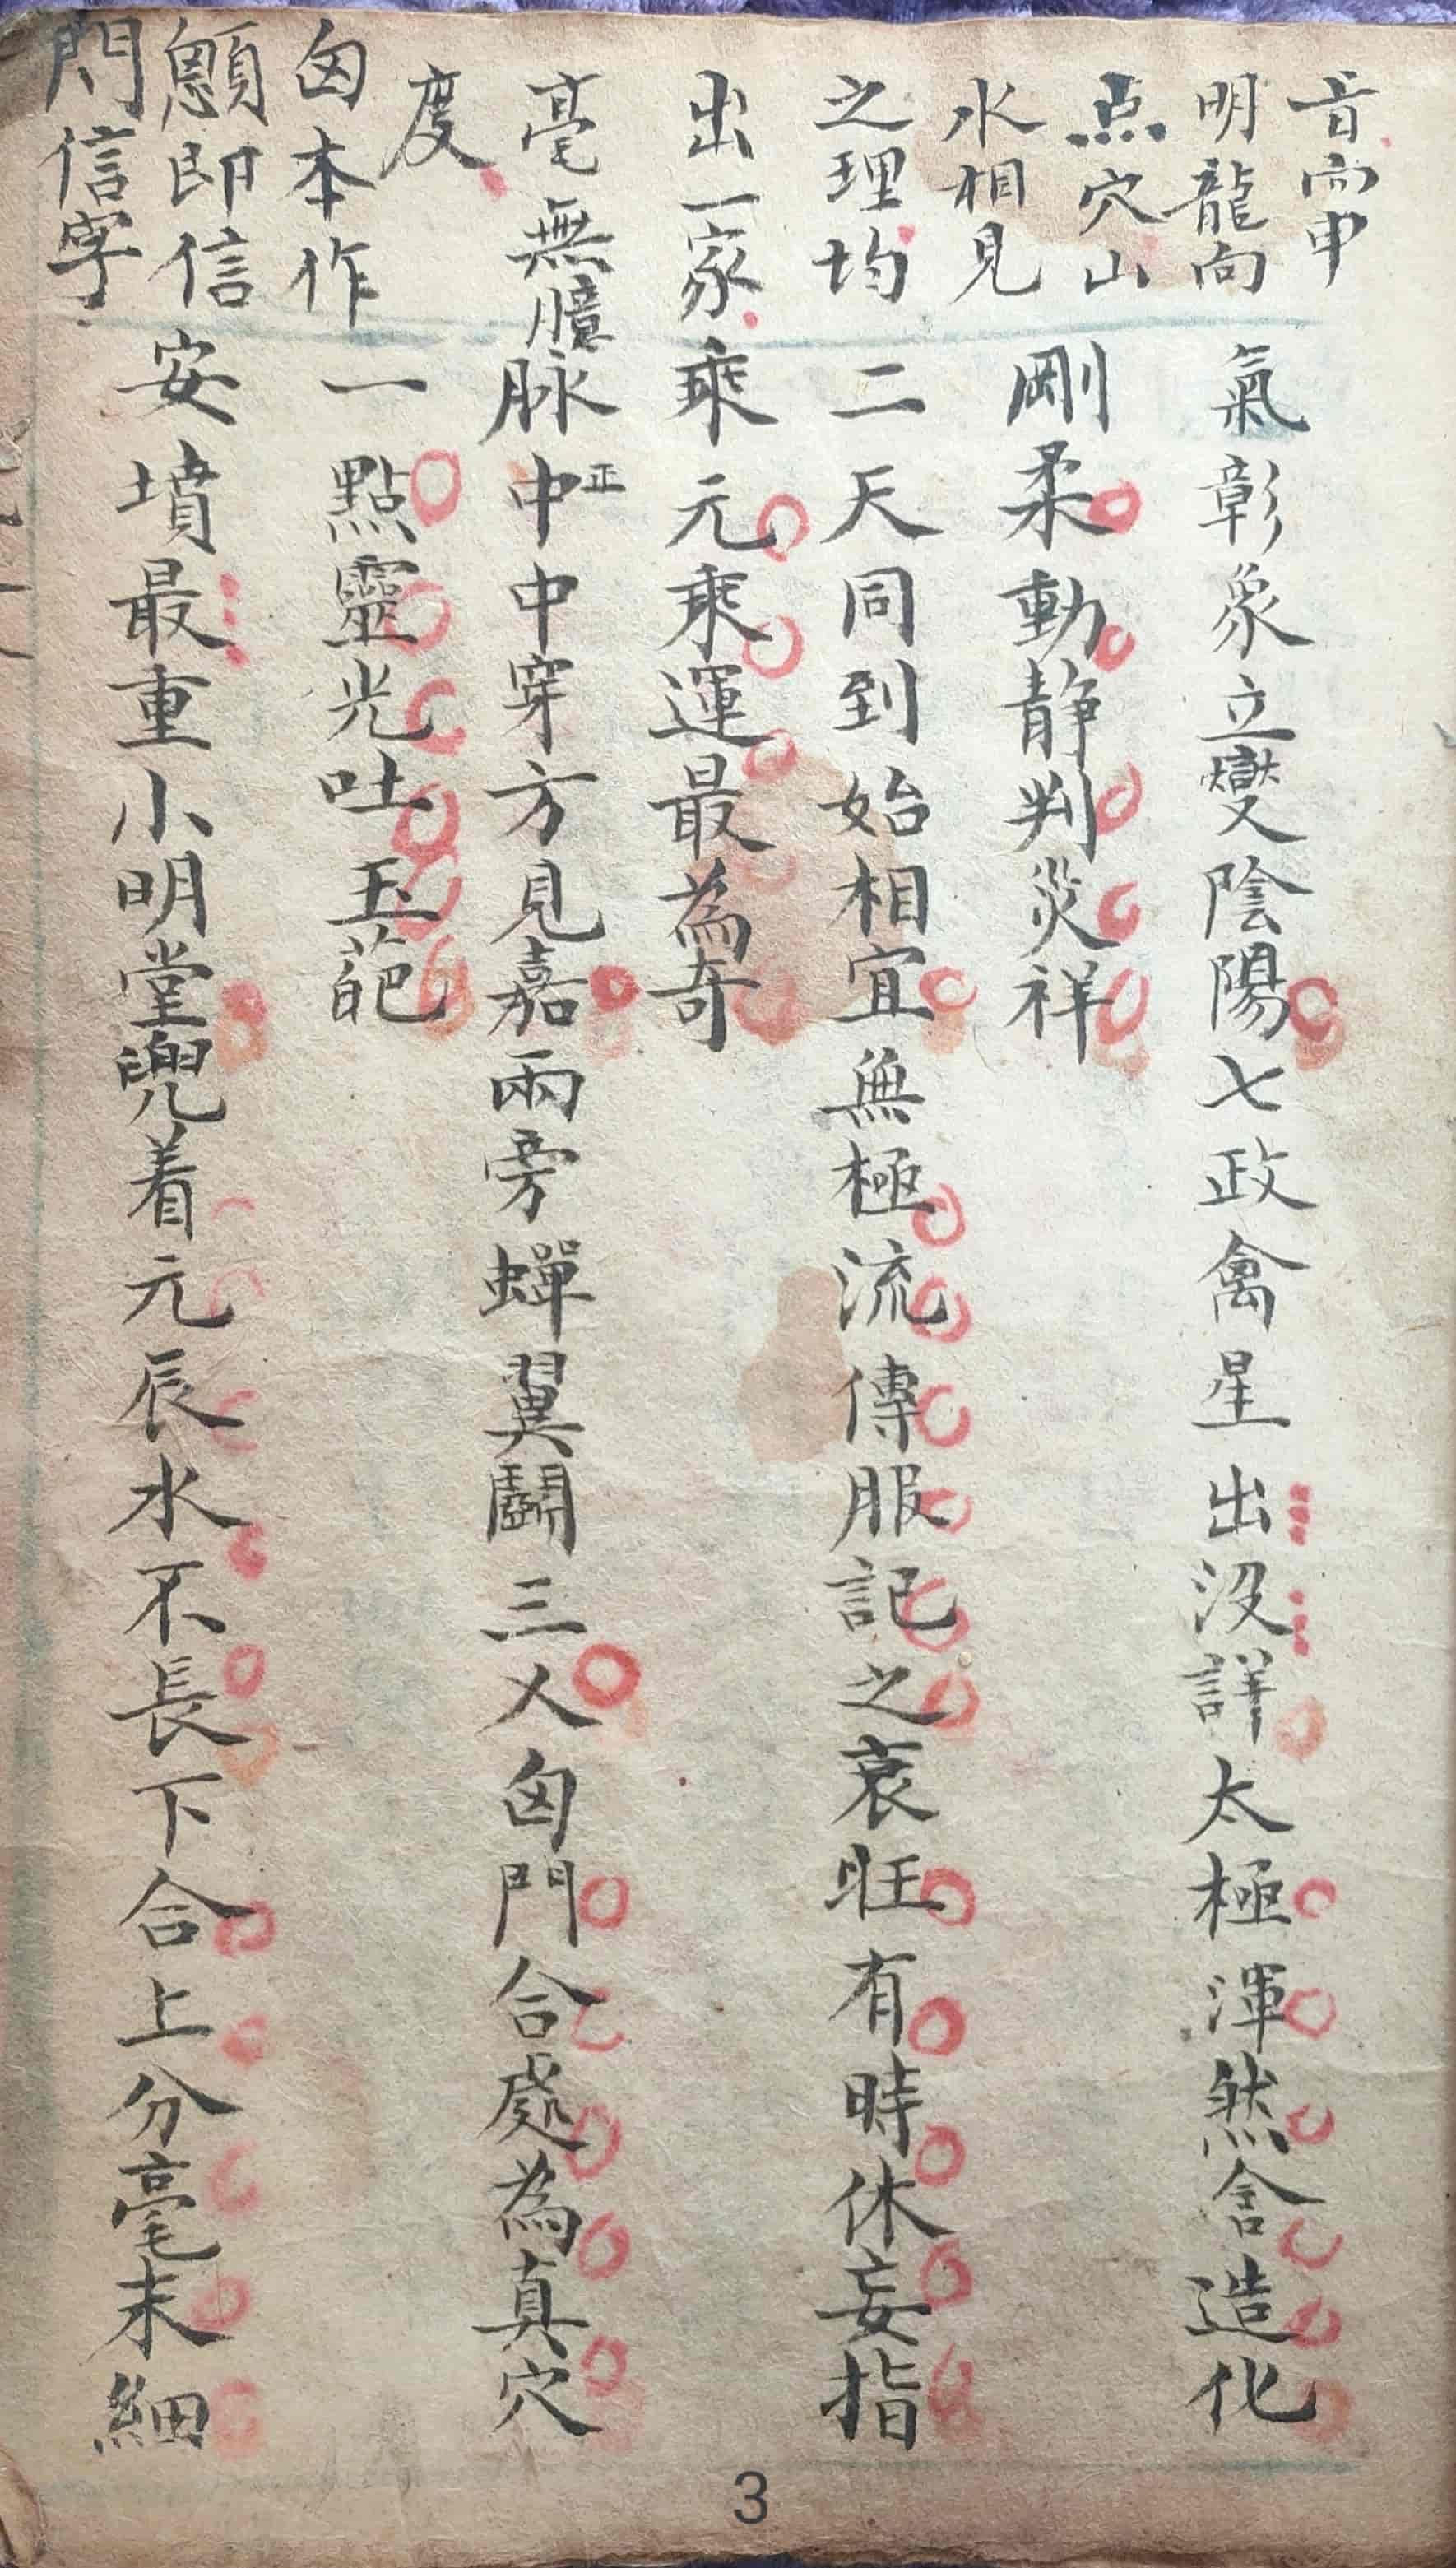 音向申
明龍向
点穴山
水相見
之理均
出一家
毫無臆
度
囟本作
顖即信
門信字
氣彰象立變陰陽七政禽星出沒詳太極渾然含造化
剛柔動静判災祥
二天同到始相宜無極流傳服記之衰旺有時休妄指
乘元乘運最為奇
脉中正中穿方見嘉兩旁蟬翼鬭三乂囟門合處為真穴
一點靈光吐玉葩
安墳最重小明堂兜着元辰水不長下合上分毫末細
3